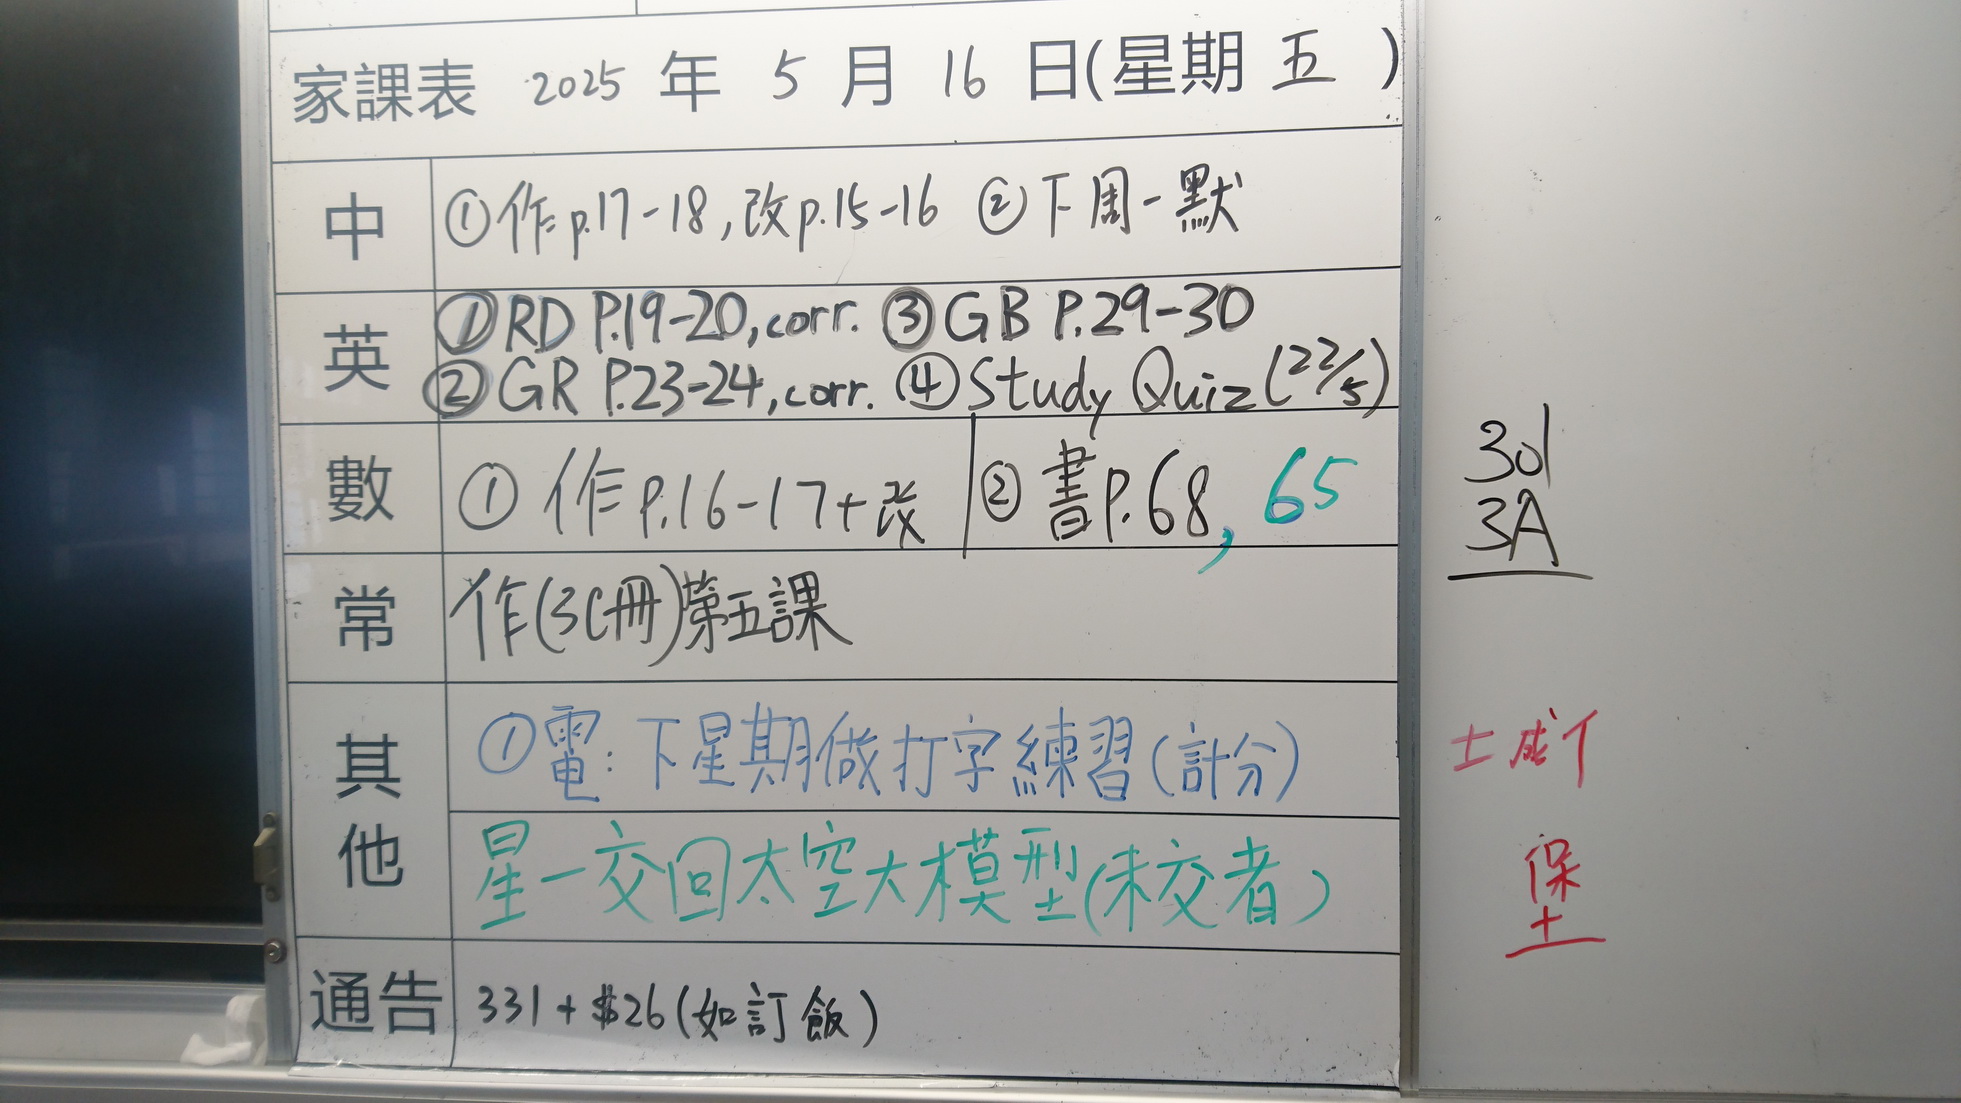 家課表 2025 年 5 月 16 日(星期 五 )
中 ①作p.17-18,改p.15-16 ②下周一默
英 ①RD P.19-20,corr. ③GB P.29-30
②GR P.23-24,corr. ④Study Quiz(22/5)
數 ①作P.16-17+改 ②書P.68,65
常 作(3C冊)第五課
其他 ①電:下星期做打字練習(計分)
星一交回太空大模型(未交者)
通告 331+$26(如訂飯)
301
3A
堡